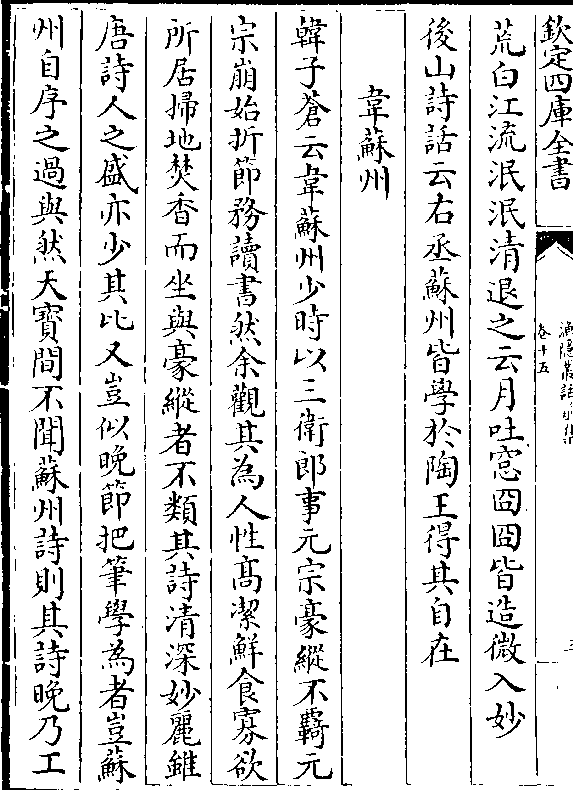 欽定四庫全書
漁隱叢話前集
卷十五
三
荒白江流泯泯清退之云月吐窓冏冏皆造微入妙
後山詩話云右丞蘇州皆學於陶王得其自在
韋蘇州
韓子蒼云韋蘇州少時以三衛郎事元宗豪縱不羈元
宗崩始折節務讀書然余觀其為人性髙潔鮮食寡欲
所居掃地焚香而坐與豪縱者不類其詩清深妙麗雖
唐詩人之盛亦少其比又豈似晚節把筆學為者豈蘇
州自序之過與然天寳間不聞蘇州詩則其詩晚乃工